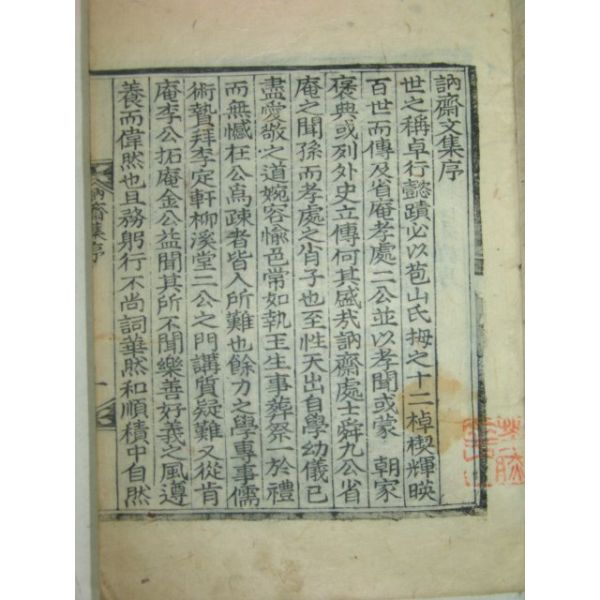 訥齋文集序
世之稱卓行懿蹟必以苞山氏拇之十二棹楔輝暎
百世而傳及省庵孝處二公並以孝聞或蒙　朝家
褒典或列外史立傳何其盛㢤訥齋處士舜九公省
庵之聞孫而孝處之肖子也至性天出自學幼儀已
盡愛敬之道婉容愉色常如執玉生事葬祭一於禮
而無憾在公爲疎者皆人所難也餘力之學專事儒
術贄拜李定軒柳溪堂二公之門講質疑難又從肯
庵李公拓庵金公益聞其所不聞樂善好義之風遵
養而偉然也且務躬行不尚詞華然和順積中自然
訥齋集序
一